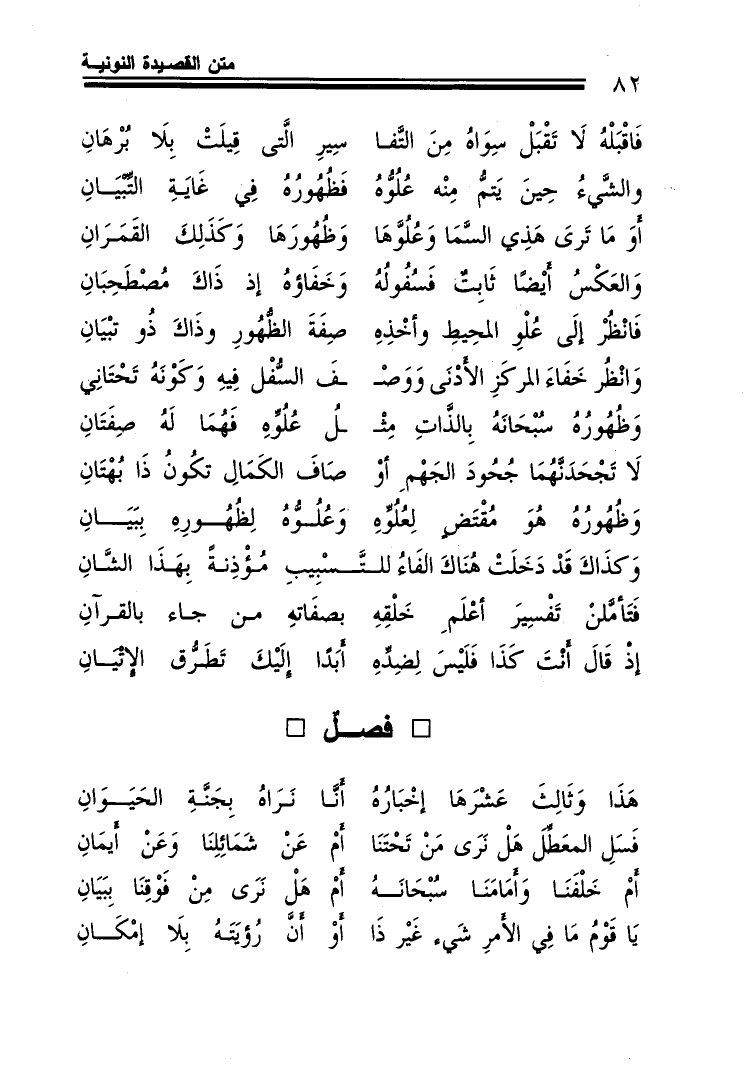 متن القصيدة النونيـة
٨٢
فَاقْبَلْهُ لَا تَقْبَلْ سِوَاهُ مِنَ التَّفـا سيرِ الَّتى قِيلَتْ بِلَا بُرْهَانِ
والشَّيءُ حِينَ يَتمُّ مِنْه عُلُوُّهُ فَظُهُورُهُ فِي غَايَةِ التِّبْيَـانِ
أوَ مَا تَرىَ هَذِي السَّمَا وَعُلُوَّهَا وَظُهُورَهَا وَكَذَلِكَ القَمَرَانِ
وَالعَكْسُ أَيْضًا ثَابِتٌ فَسُفُولُهُ وَخَفَاؤهُ إذ ذَاكَ مُصْطَحِبَانِ
فَانْظُرْ إلَى عُلْوِ المحِيطِ وأخْذِهِ صِفَةَ الظُّهُورِ وذَاكَ ذُو تبْيَانِ
وَانْظُر خَفَاءَ المركَزِ الأَدْنَى وَوَصْـ ـفَ السُّفْل فِيهِ وَكَوْنَهُ تَحْتَانِي
وَظُهُورُهُ سُبْحَانَهُ بِالذَّاتِ مِثْـ ـلُ عُلُوِّهِ فَهُمَا لَهُ صِفَتَانِ
لَا تَجْحَدَنَّهُمَا جُحُودَ الجَهْمِ أوْ صَافَ الكَمَالِ تكُونُ ذَا بُهْتَانِ
وَظُهُورُهُ هُوَ مُقْتَضٍ لِعُلُوِّهِ وَعُلُـوُّهُ لِظُهُـورِهِ بِبَيَـانِ
وَكَذَاكَ قَدْ دَخَلَتْ هُنَاكَ الفَاءُ للتَّـسْبِيبِ مُؤْذِنةً بِهَذَا الشَّانِ
فَتَأمَّلنْ تَفْسِيرَ أعْلَمِ خَلْقِهِ بصفَاتهِ مـن جـاء بالقـرآنِ
إذْ قَالَ أَنْتَ كَذَا فَلَيْسَ لِضِدِّهِ أَبَدًا إِلَيْكَ تَطَرُّق الإتْيَـانِ
□ فصـلٌ □
هَذَا وَثَالِثَ عَشْرَهَا إخْبَارُهُ أَنَّـا نَـرَاهُ بِجَنَّةِ الحَيَـوانِ
فَسَلِ المعَطِّلَ هَلْ نَرَى مَنْ تَحْتَنَا أمْ عَنْ شَمَائِلِنَا وَعَنْ أيمَانِ
أمْ خَلْفَنَـا وَأَمَامَنَـا سُبْحَانَـهُ أمْ هَلْ نَرَى مِنْ فَوْقِنَا بِبَيَانِ
يَا قَوْمُ مَا فِي الأَمرِ شَيء غَيْر ذَا أوْ أنَّ رُؤيَتَـهُ بِلَا إمْكَـانِ